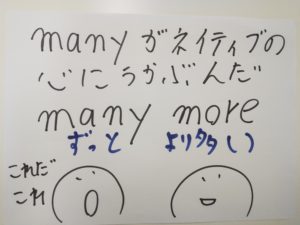 many がネイティブの
心にうかぶんだ
many more
ずっと より多い
これだ
これ